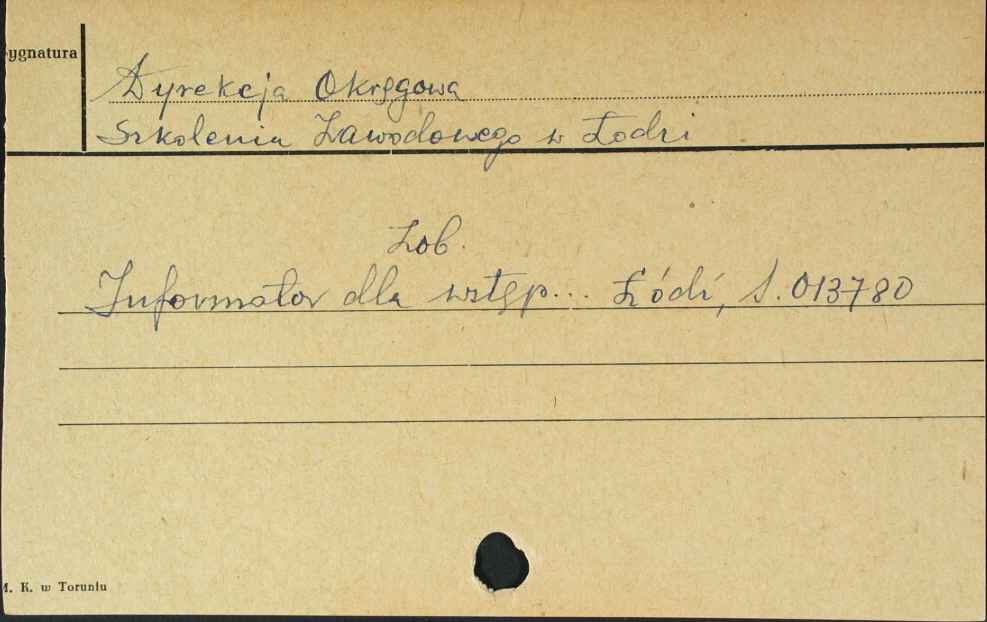 ygnatura
Dyrekcja Okręgowa
Szkolenia Zawodowego w Łodzi
Zob.
Informator dla wstęp... Łódź, S. 013780
K. w Toruniu